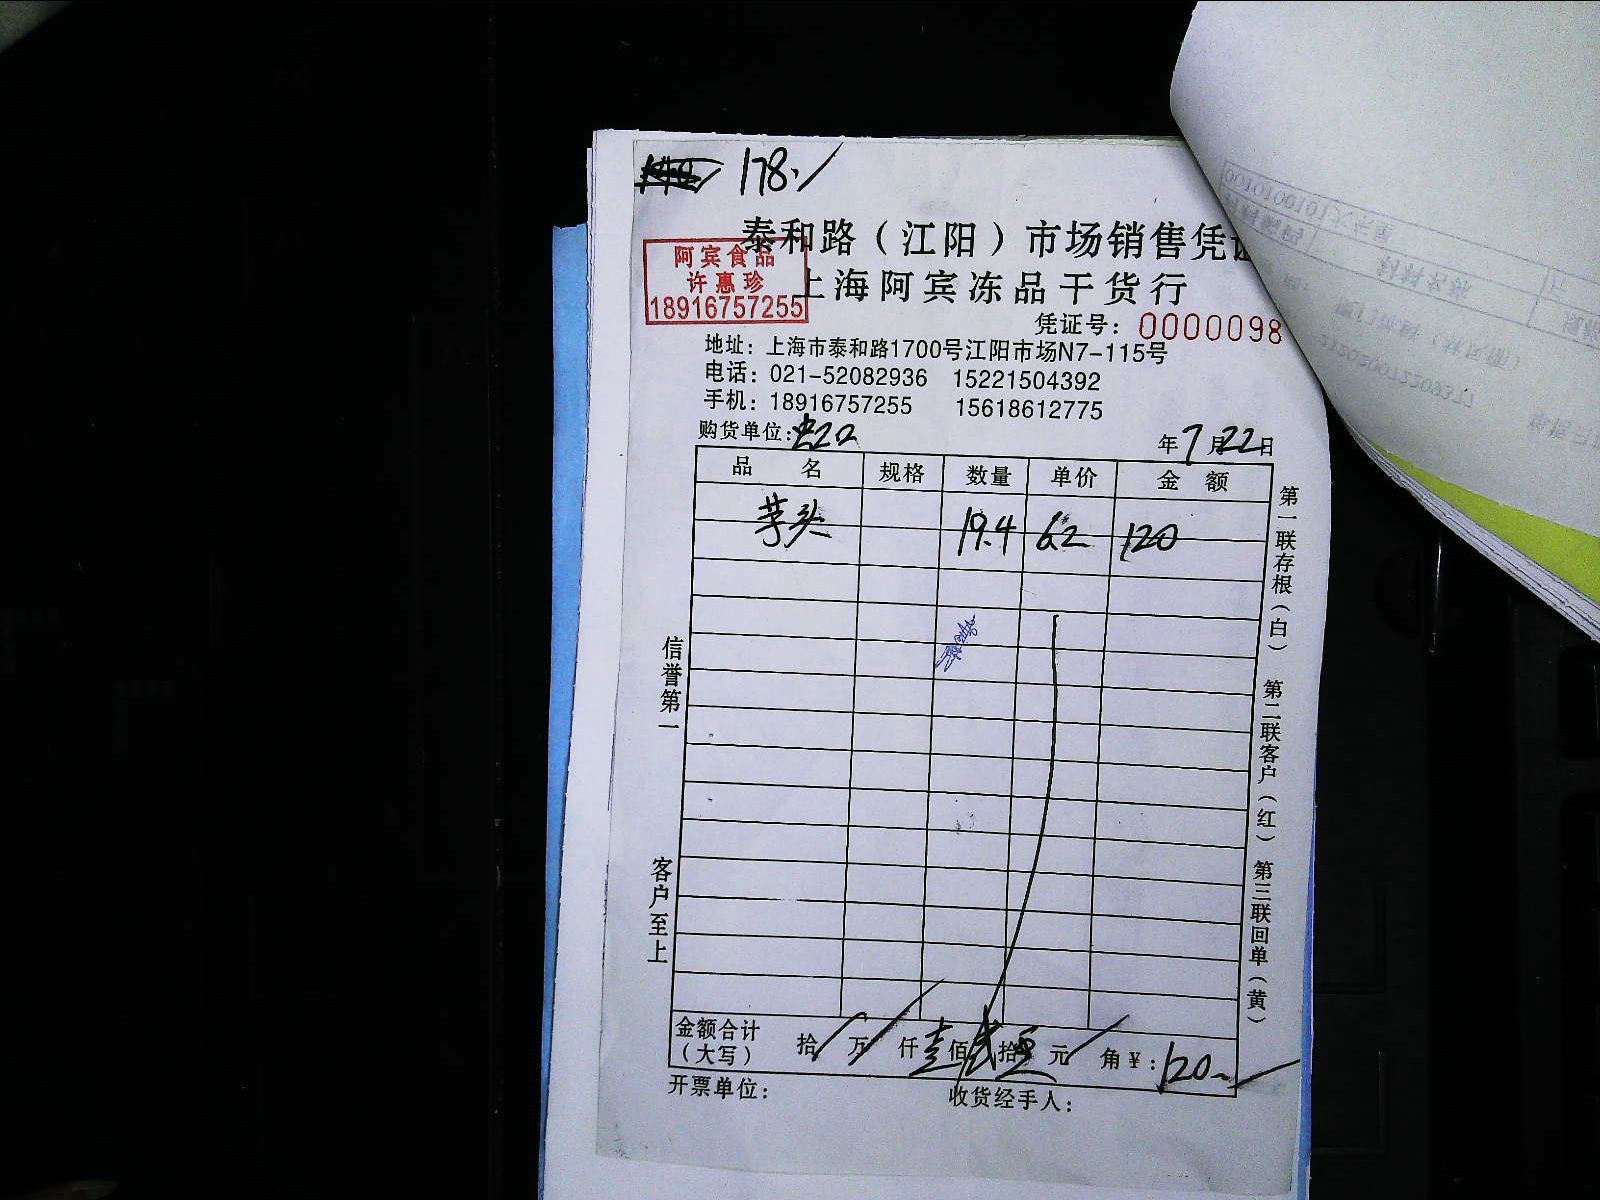 178.
泰和路（江阳）市场销售凭
阿宾食品
许惠珍
18916757255
上海阿宾冻品干货行
凭证号：0000098
地址：上海市泰和路1700号江阳市场N7-115号
电话：021-52082936 15221504392
手机：18916757255 15618612775
购货单位：
年7月22日
品名 规格 数量 单价 金额
芋头 19.4 6.2 120
信誉第一
客户至上
第一联存根（白）
第二联客户（红）
第三联回单（黄）
金额合计（大写） 拾 万 仟 壹 佰 贰 拾 元 角 ￥：120
开票单位：
收货经手人：